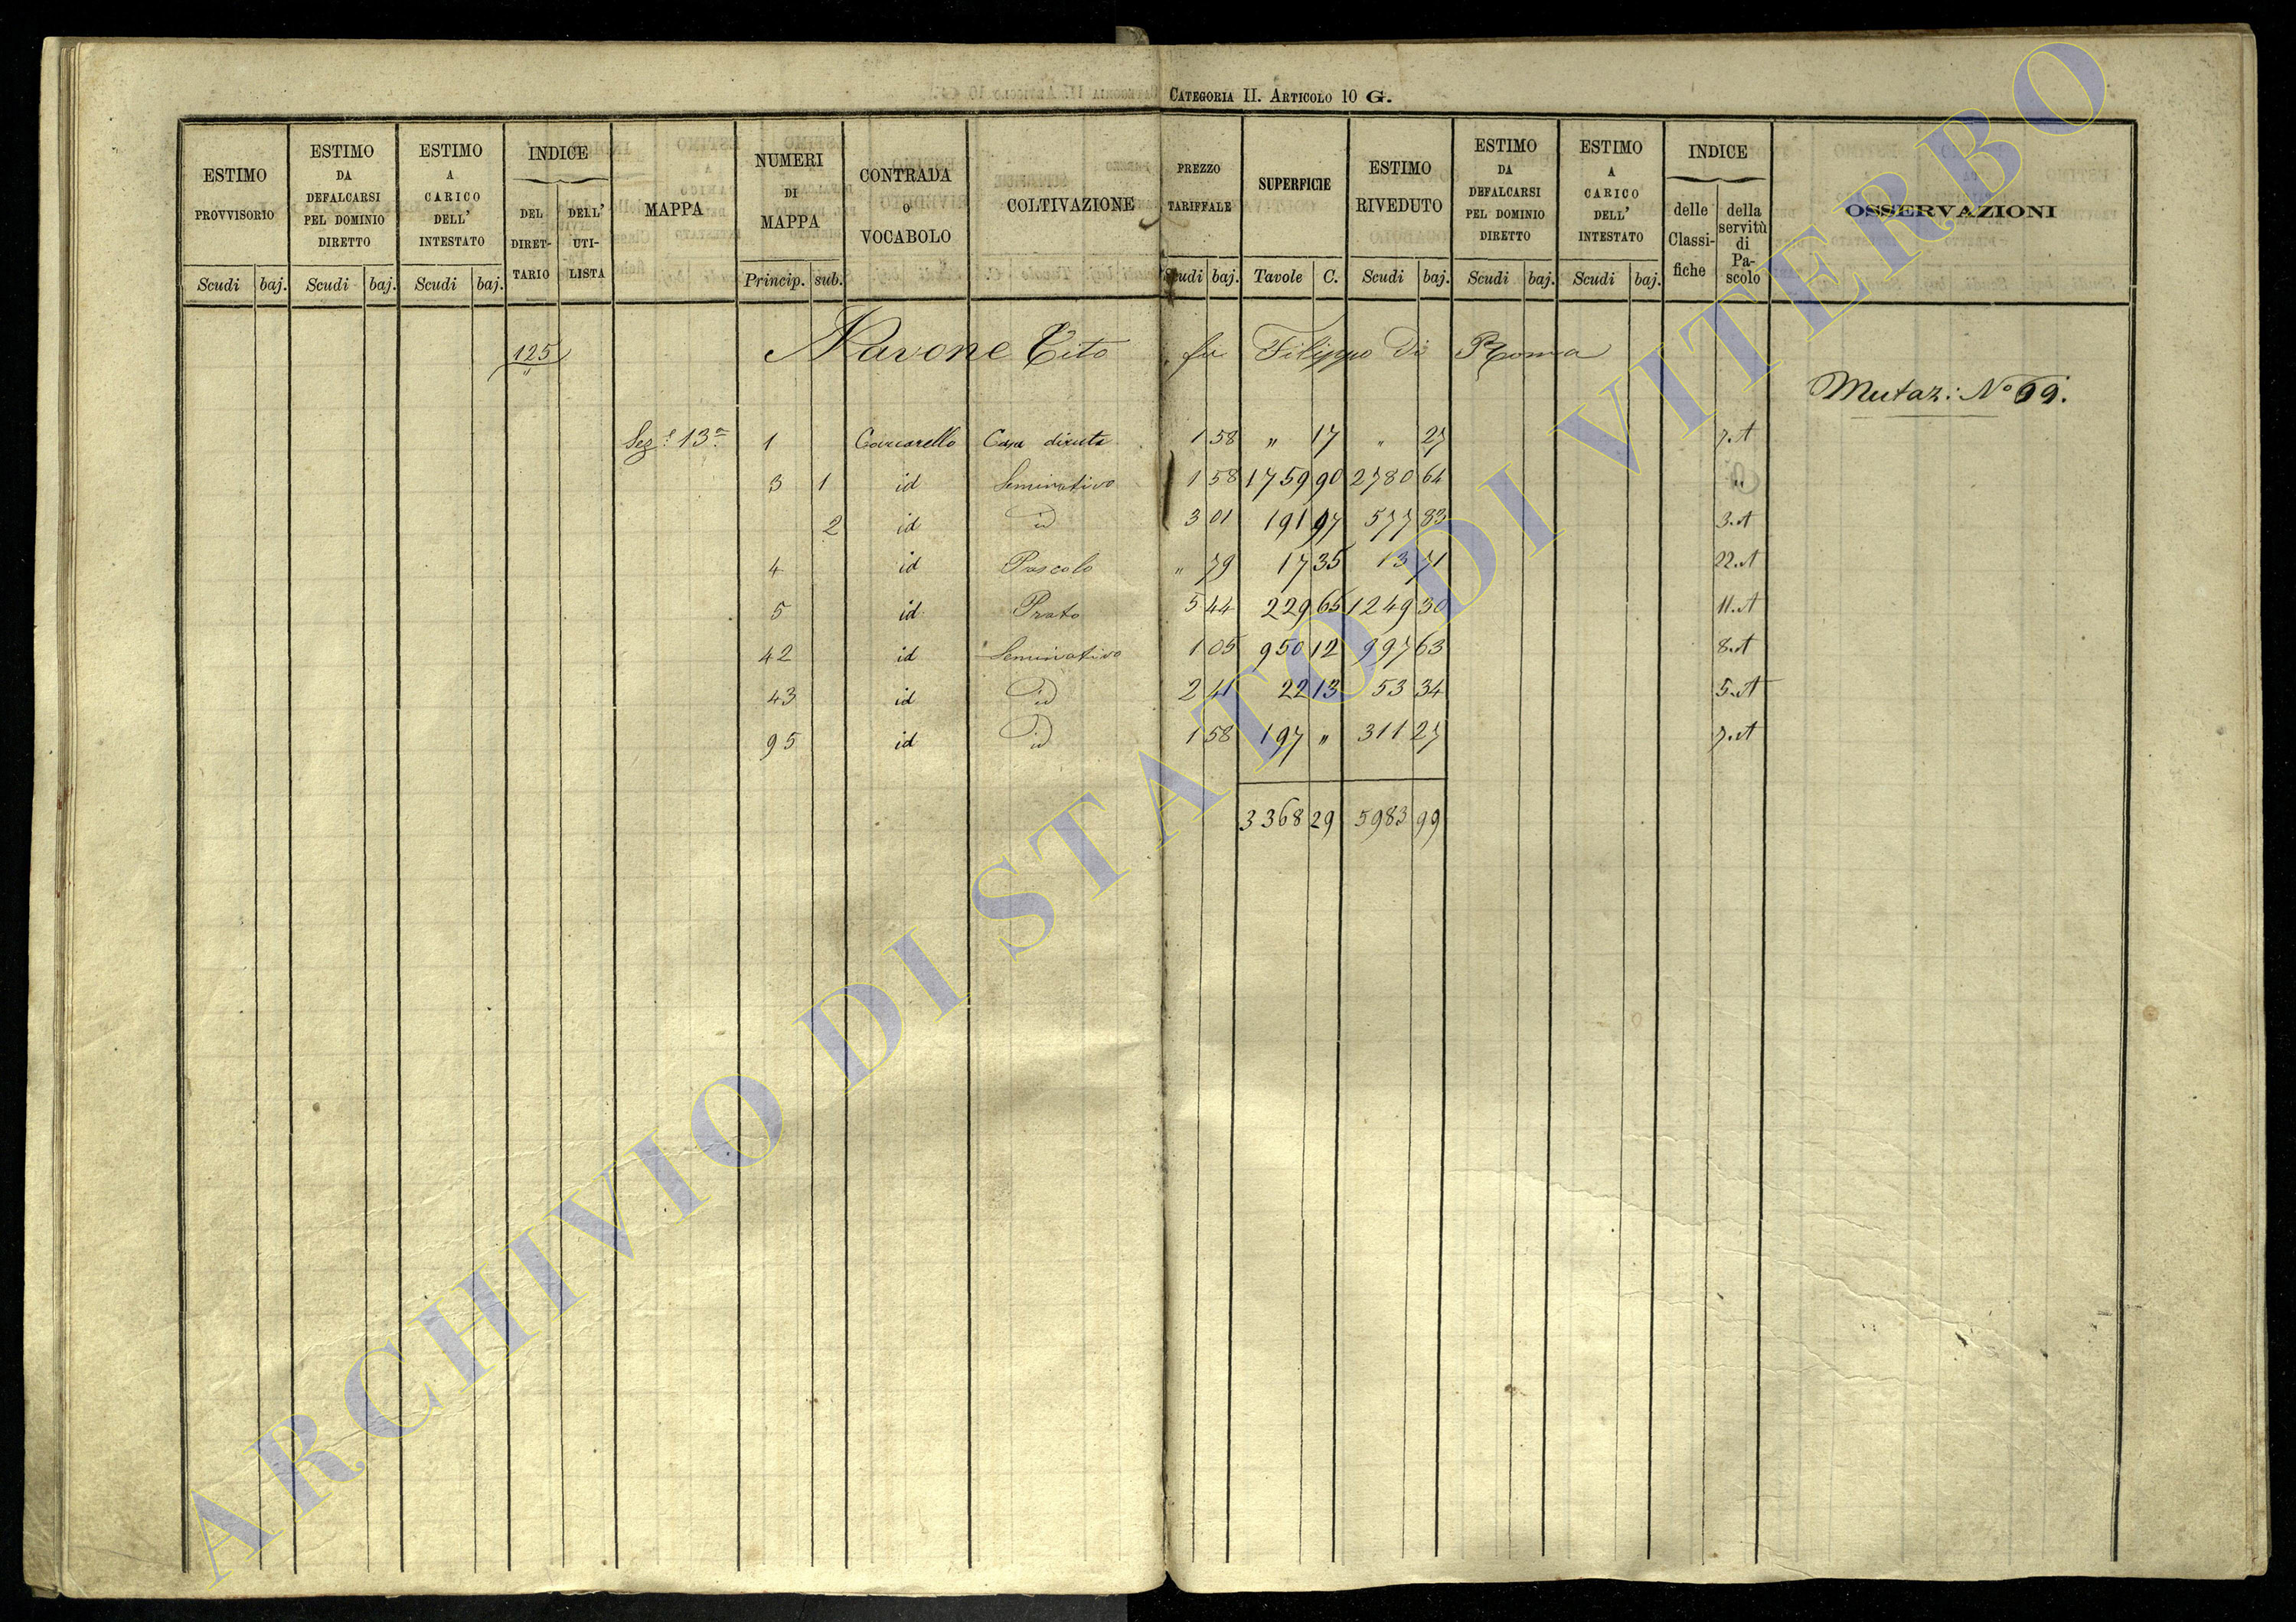 CATEGORIA II. ARTICOLO 10 G.
ESTIMO PROVVISORIO Scudi baj.
ESTIMO DA DEFALCARSI PEL DOMINIO DIRETTO Scudi baj.
ESTIMO A CARICO DELL' INTESTATO Scudi baj.
INDICE DEL DIRET-TARIO DELL' UTI-LISTA
MAPPA
NUMERI DI MAPPA Princip. sub.
CONTRADA O VOCABOLO
COLTIVAZIONE
PREZZO TARIFFALE Scudi baj.
SUPERFICIE Tavole C.
ESTIMO RIVEDUTO Scudi baj.
ESTIMO DA DEFALCARSI PEL DOMINIO DIRETTO Scudi baj.
ESTIMO A CARICO DELL' INTESTATO Scudi baj.
INDICE delle Classi-fiche della servitù di Pa-scolo
OSSERVAZIONI
125 Navone Tito fu Filippo di Roma
Mutaz: No 99.
Sez.e 13a 1 Casa diruta 1 58 " 17 " 27 7.A
3 1 id Seminativo 1 58 1759 90 2780 64 "
2 id id 3 01 191 97 577 83 3.A
4 id Pascolo " 79 17 35 13 71 22.A
5 id Prato 5 44 229 65 1249 30 11.A
42 id Seminativo 1 05 950 12 997 63 8.A
43 id id 2 41 22 13 53 34 5.A
95 id id 1 58 197 " 311 27 7.A
3368 29 5983 99
ARCHIVIO DI STATO DI VITERBO